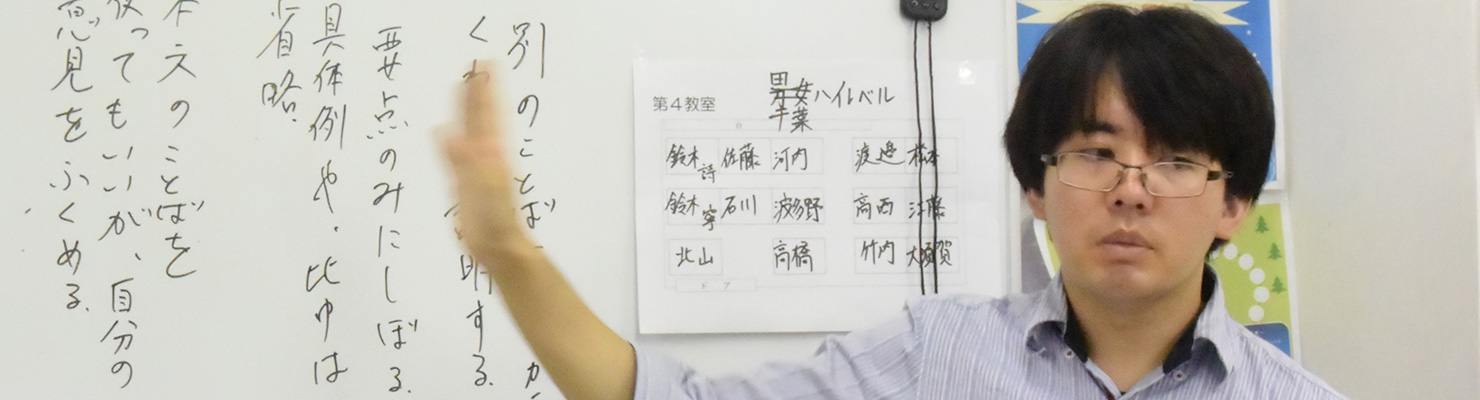 別のことば
くわ 明する。
要点のみにしぼる。
具体例や・比ゆは
省略。
本文のことばを
使ってもいいが、自分の
意見をふくめる。
第4教室
男女ハイレベル
千葉
鈴木詩 佐藤 河内 渡邉 松本
鈴木寧 石川 波多野 高西 江藤
北山 高橋 竹内 大須賀
ドア